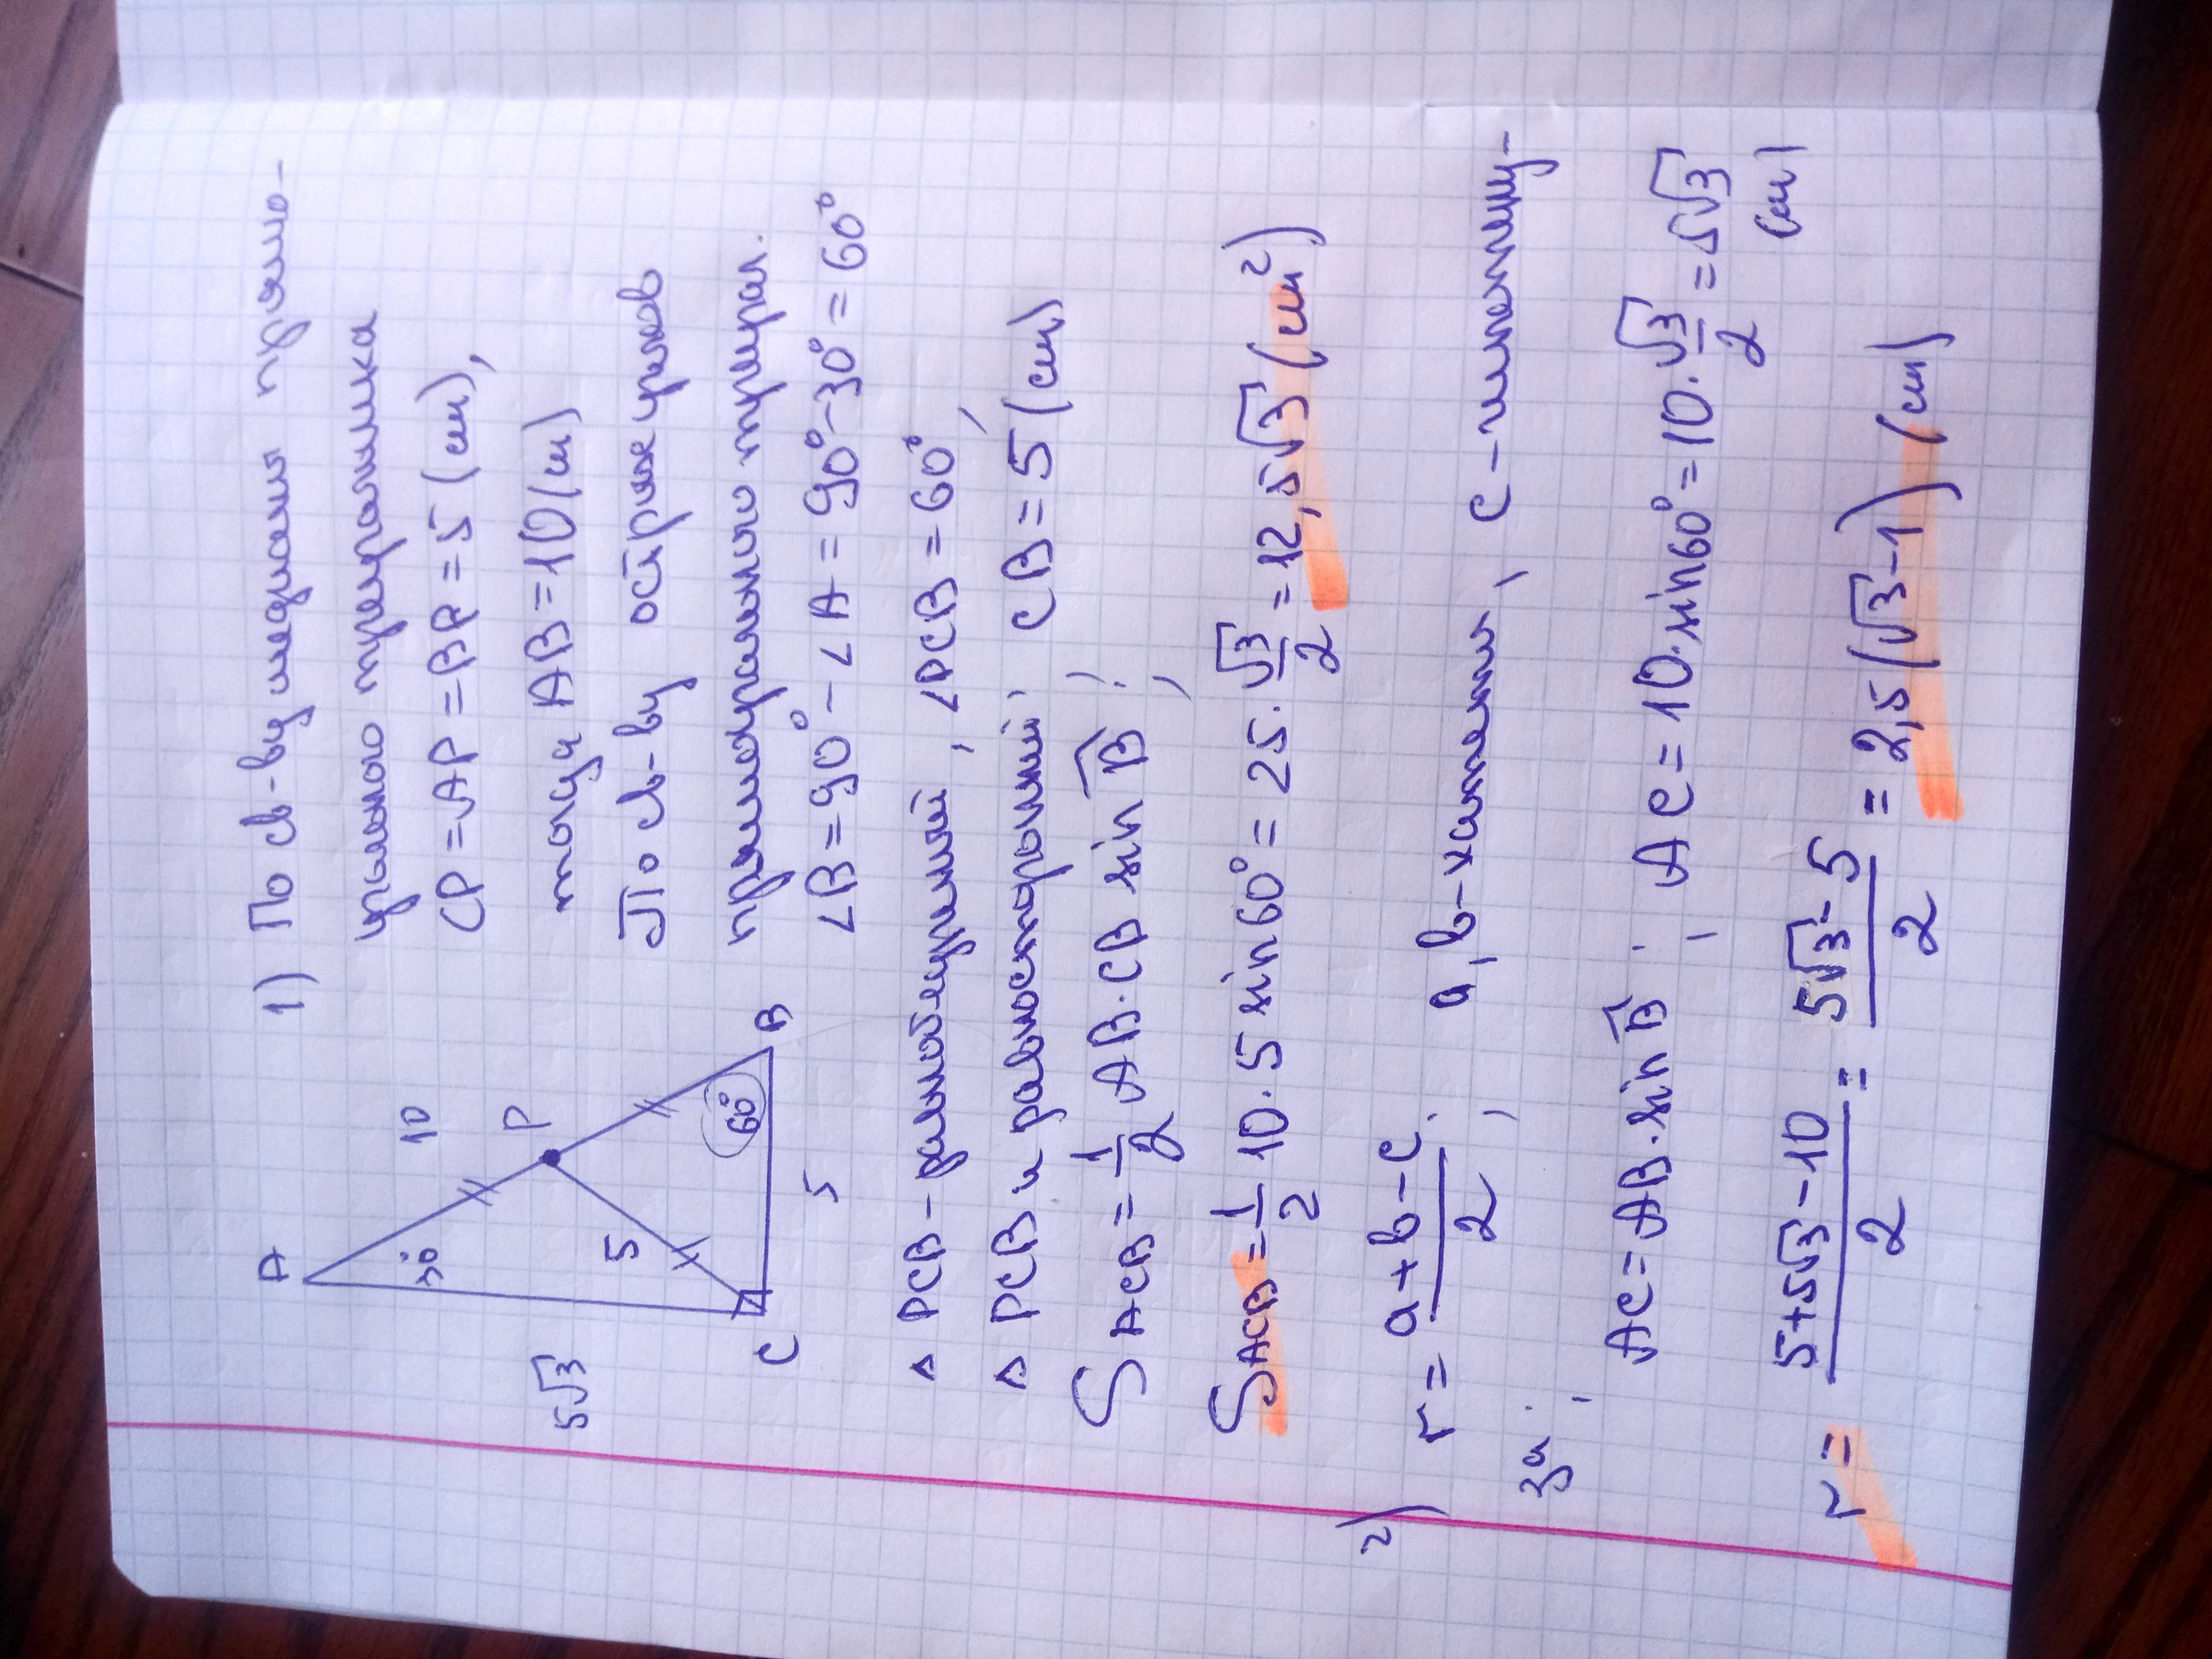 1) По св-ву медианы прямо-
угольного треугольника
CP = AP = BP = 5 (см),
тогда AB = 10 (см)
По св-ву острых углов
прямоугольного треугол.
∠B = 90° - ∠A = 90° - 30° = 60°
A
30°
10
P
5√3
5
60°
C
5
B
△ PCB - равнобедренный, ∠PCB = 60°,
△ PCB и равносторонний; CB = 5 (см)
S ACB = 1/2 AB · CB sin B;
S ACB = 1/2 10 · 5 sin 60° = 25 · √3/2 = 12,5√3 (см²)
2) r = (a + b - c)/2; a, b - катеты, c - гипотену-
за; AC = AB · sin B; AC = 10 · sin 60° = 10 · √3/2 = 5√3
(см)
r = (5 + 5√3 - 10)/2 = (5√3 - 5)/2 = 2,5(√3 - 1) (см)